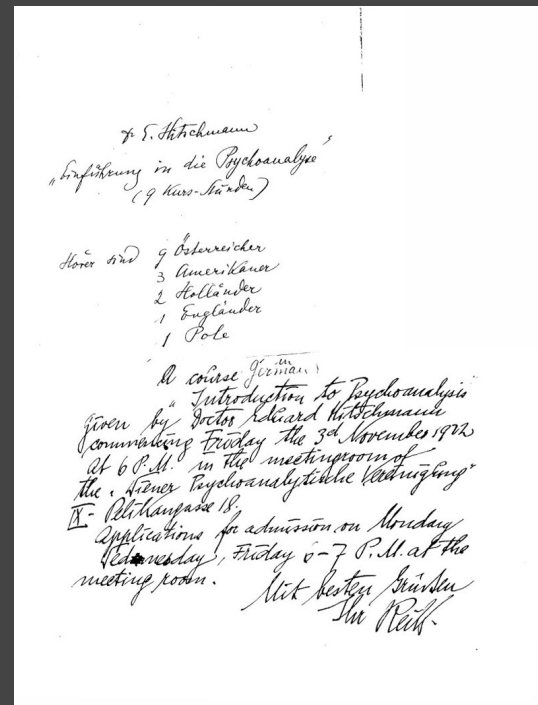 Dr E. Hitschmann
„Einführung in die Psychoanalyse"
(9 Kurs-Stunden)
Hörer sind 9 Österreicher
3 Amerikaner
2 Holländer
1 Engländer
1 Pole
A course in German
"Introduction to Psychoanalysis
given by Doctor Eduard Hitschmann
commencing Friday the 3d November 1922
at 6 P.M. in the meetingroom of
the „Wiener Psychoanalytische Vereinigung"
IX. Pelikangasse 18.
Applications for admission on Monday
Wednesday, Friday 6-7 P.M. at the
meeting room.
Mit besten Grüßen
Ihr